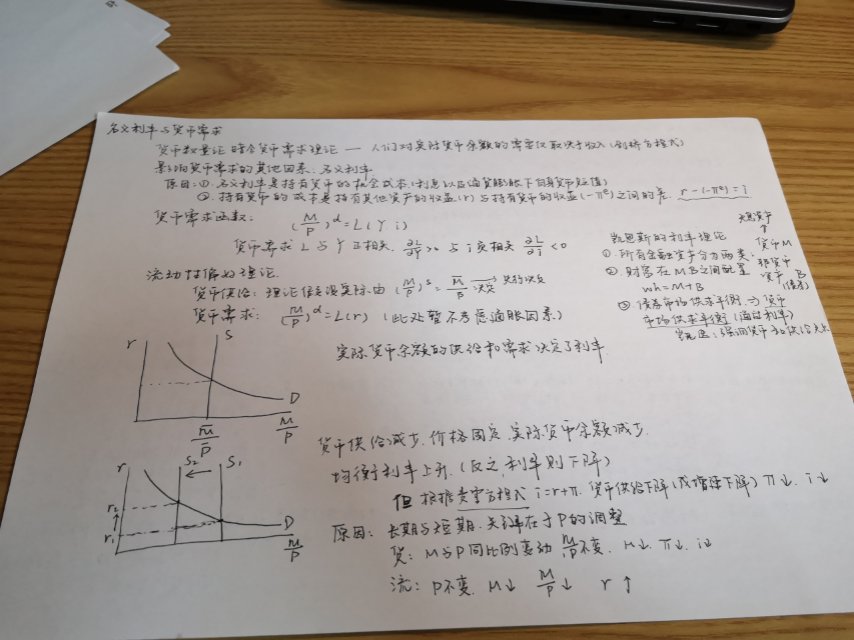 名义利率与货币需求
货币数量论暗含货币需求理论 — 人们对实际货币余额的需要仅取决于收入(剑桥方程式)
影响货币需求的其他因素:名义利率
原因:① 名义利率是持有货币的机会成本(利息以及通货膨胀下自身货币贬值)
② 持有货币的成本是持有其他资产的收益(r)与持有货币的收益(-πᵉ)之间的差. r-(-πᵉ)=i
货币需求函数: (M/P)ᵈ = L(Y, i)
货币需求 L 与 Y 正相关. ∂L/∂Y >0 与 i 负相关 ∂L/∂i <0
流动性偏好理论.
货币供给: 理论假定 实际 由 (M/P)ˢ = M̅/P̅ 决定 央行决定
货币需求: (M/P)ᵈ = L(r) (此处暂不考虑通胀因素)
凯恩斯的利率理论
① 所有金融资产分为两类: 货币M
非货币资产 B (债券)
② 财富在MB之间配置
wh=M+B
③ 债券市场供求平衡 → 货币
市场供求平衡 (通过利率)
凯恩斯:强调货币
实际货币余额的供给和需求决定了利率
r
S
D
M̅/P̅
M/P
r
S₂
S₁
r₂
r₁
D
M/P
货币供给减少. 价格固定. 实际货币余额减少.
均衡利率上升. (反之,利率则下降)
但 根据费雪方程式 i=r+π. 货币供给下降(或增速下降) π↓. i↓
原因: 长期与短期. 关键在于P的调整
货: M与P同比例变动 M/P不变. M↓. π↓. i↓
流: P不变. M↓ M/P↓ r↑